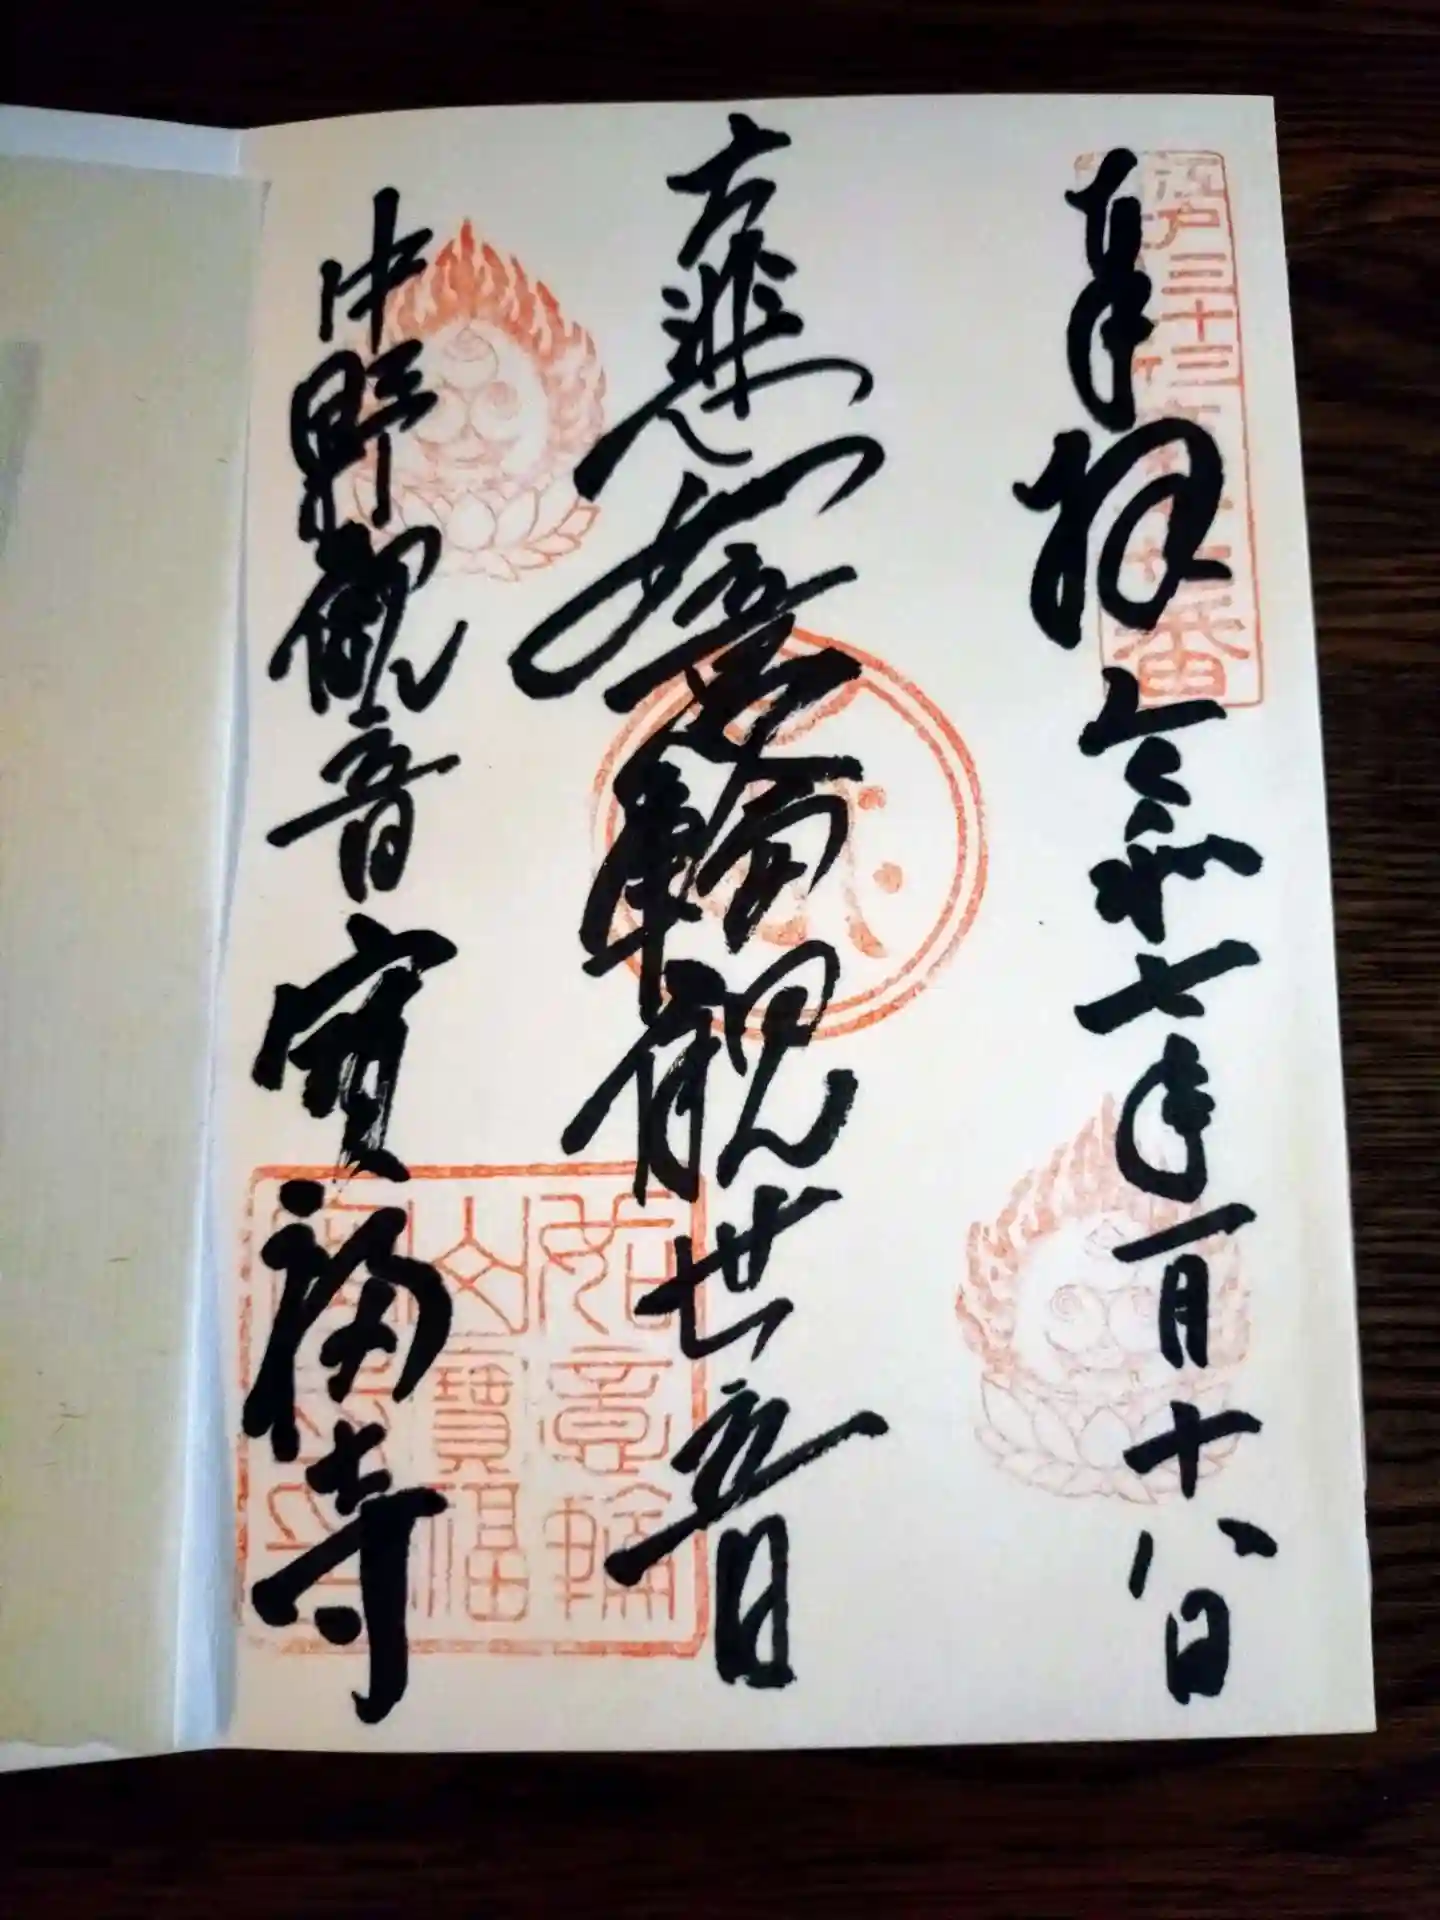 奉拝 令和七年一月十八日
大悲如意輪観世音
中野観音 宝福寺
江戸三十三
番
如意輪
山寶福